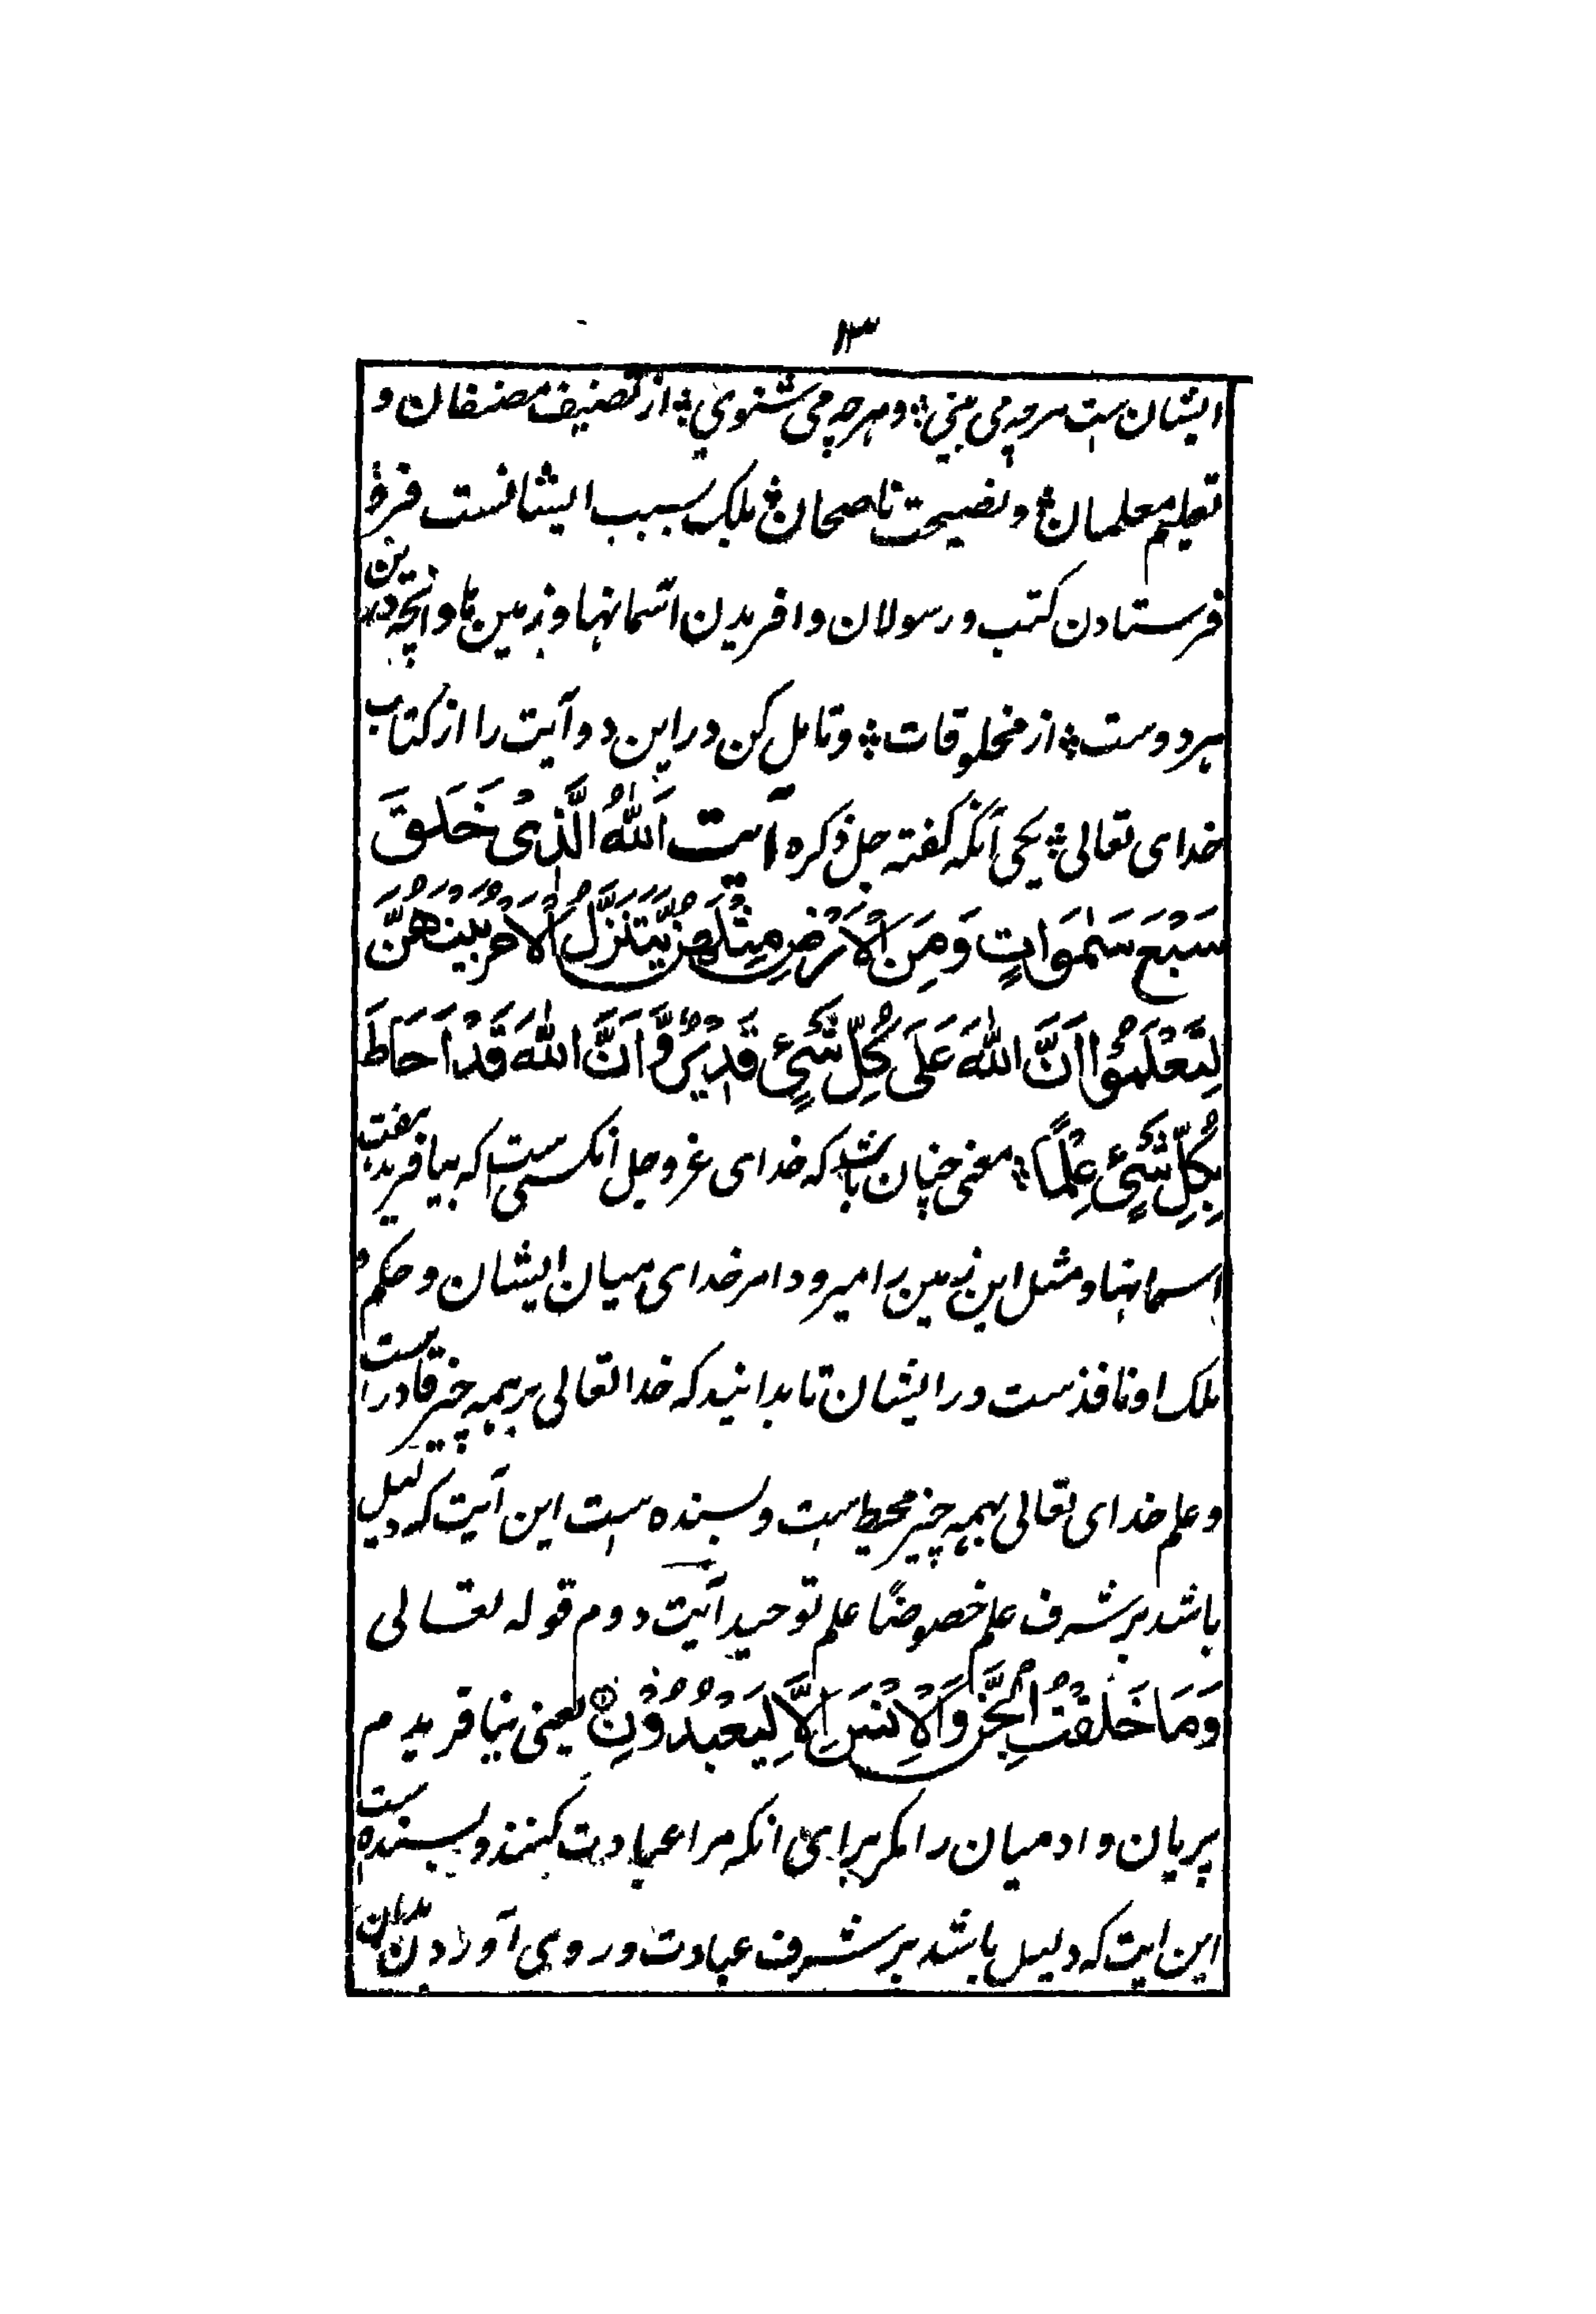 ١٣
ایشان ست هرچه می بینی؞ و هرچه می شنوي؞ از تصنیف مصنفان و
تعلیم معلمان؞ و نصیحت ناصحان؞ بلکه سبب ایشانست
فرستادن کتب و رسولان و افریدن اسمانها و زمین ها و انچه درین
هر دوست؞ از مخلوقات؞ و تامل کن در این دو آیت را از کتاب
خدای تعالی؞ یکی آنکه گفته جل ذکره آیت اَللّٰهُ الَّذِیْ خَلَقَ
سَبْعَ سَمٰوَاتٍ وَمِنَ الْاَرْضِ مِثْلَهُنَّ یَتَنَزَّلُ الْاَمْرُ بَیْنَهُنَّ
لِتَعْلَمُوْا اَنَّ اللّٰهَ عَلَی کُلِّ شَیْءٍ قَدِیْرٌ وَّ اَنَّ اللّٰهَ قَدْ اَحَاطَ
بِکُلِّ شَیْءٍ عِلْمًا؞ معنی چنان باشد که خدای عز و جل انکسی ست که بیافرید هفت
اسمانها و مثل این زمین را میرود امر خدای میان ایشان و حکم و
ملک او نافذست در ایشان تا بدانید که خدا تعالی بر همه چیز قادر است
و علم خدای تعالی بهمه چیز محیط ست و بسنده ست این آیت که دلیل
باشد بر شرف علم خصوصًا علم توحید آیت دوم قوله تعالی
وَمَا خَلَقْتُ الْجِنَّ وَالْاِنْسَ اِلَّا لِیَعْبُدُوْنِ یعنی نیافریدم
پریان و ادمیان را مگر برای انکه مرا عبادت کنند و بسنده ست
این ایت که دلیل باشد بر شرف عبادت و روی آوردن بدان